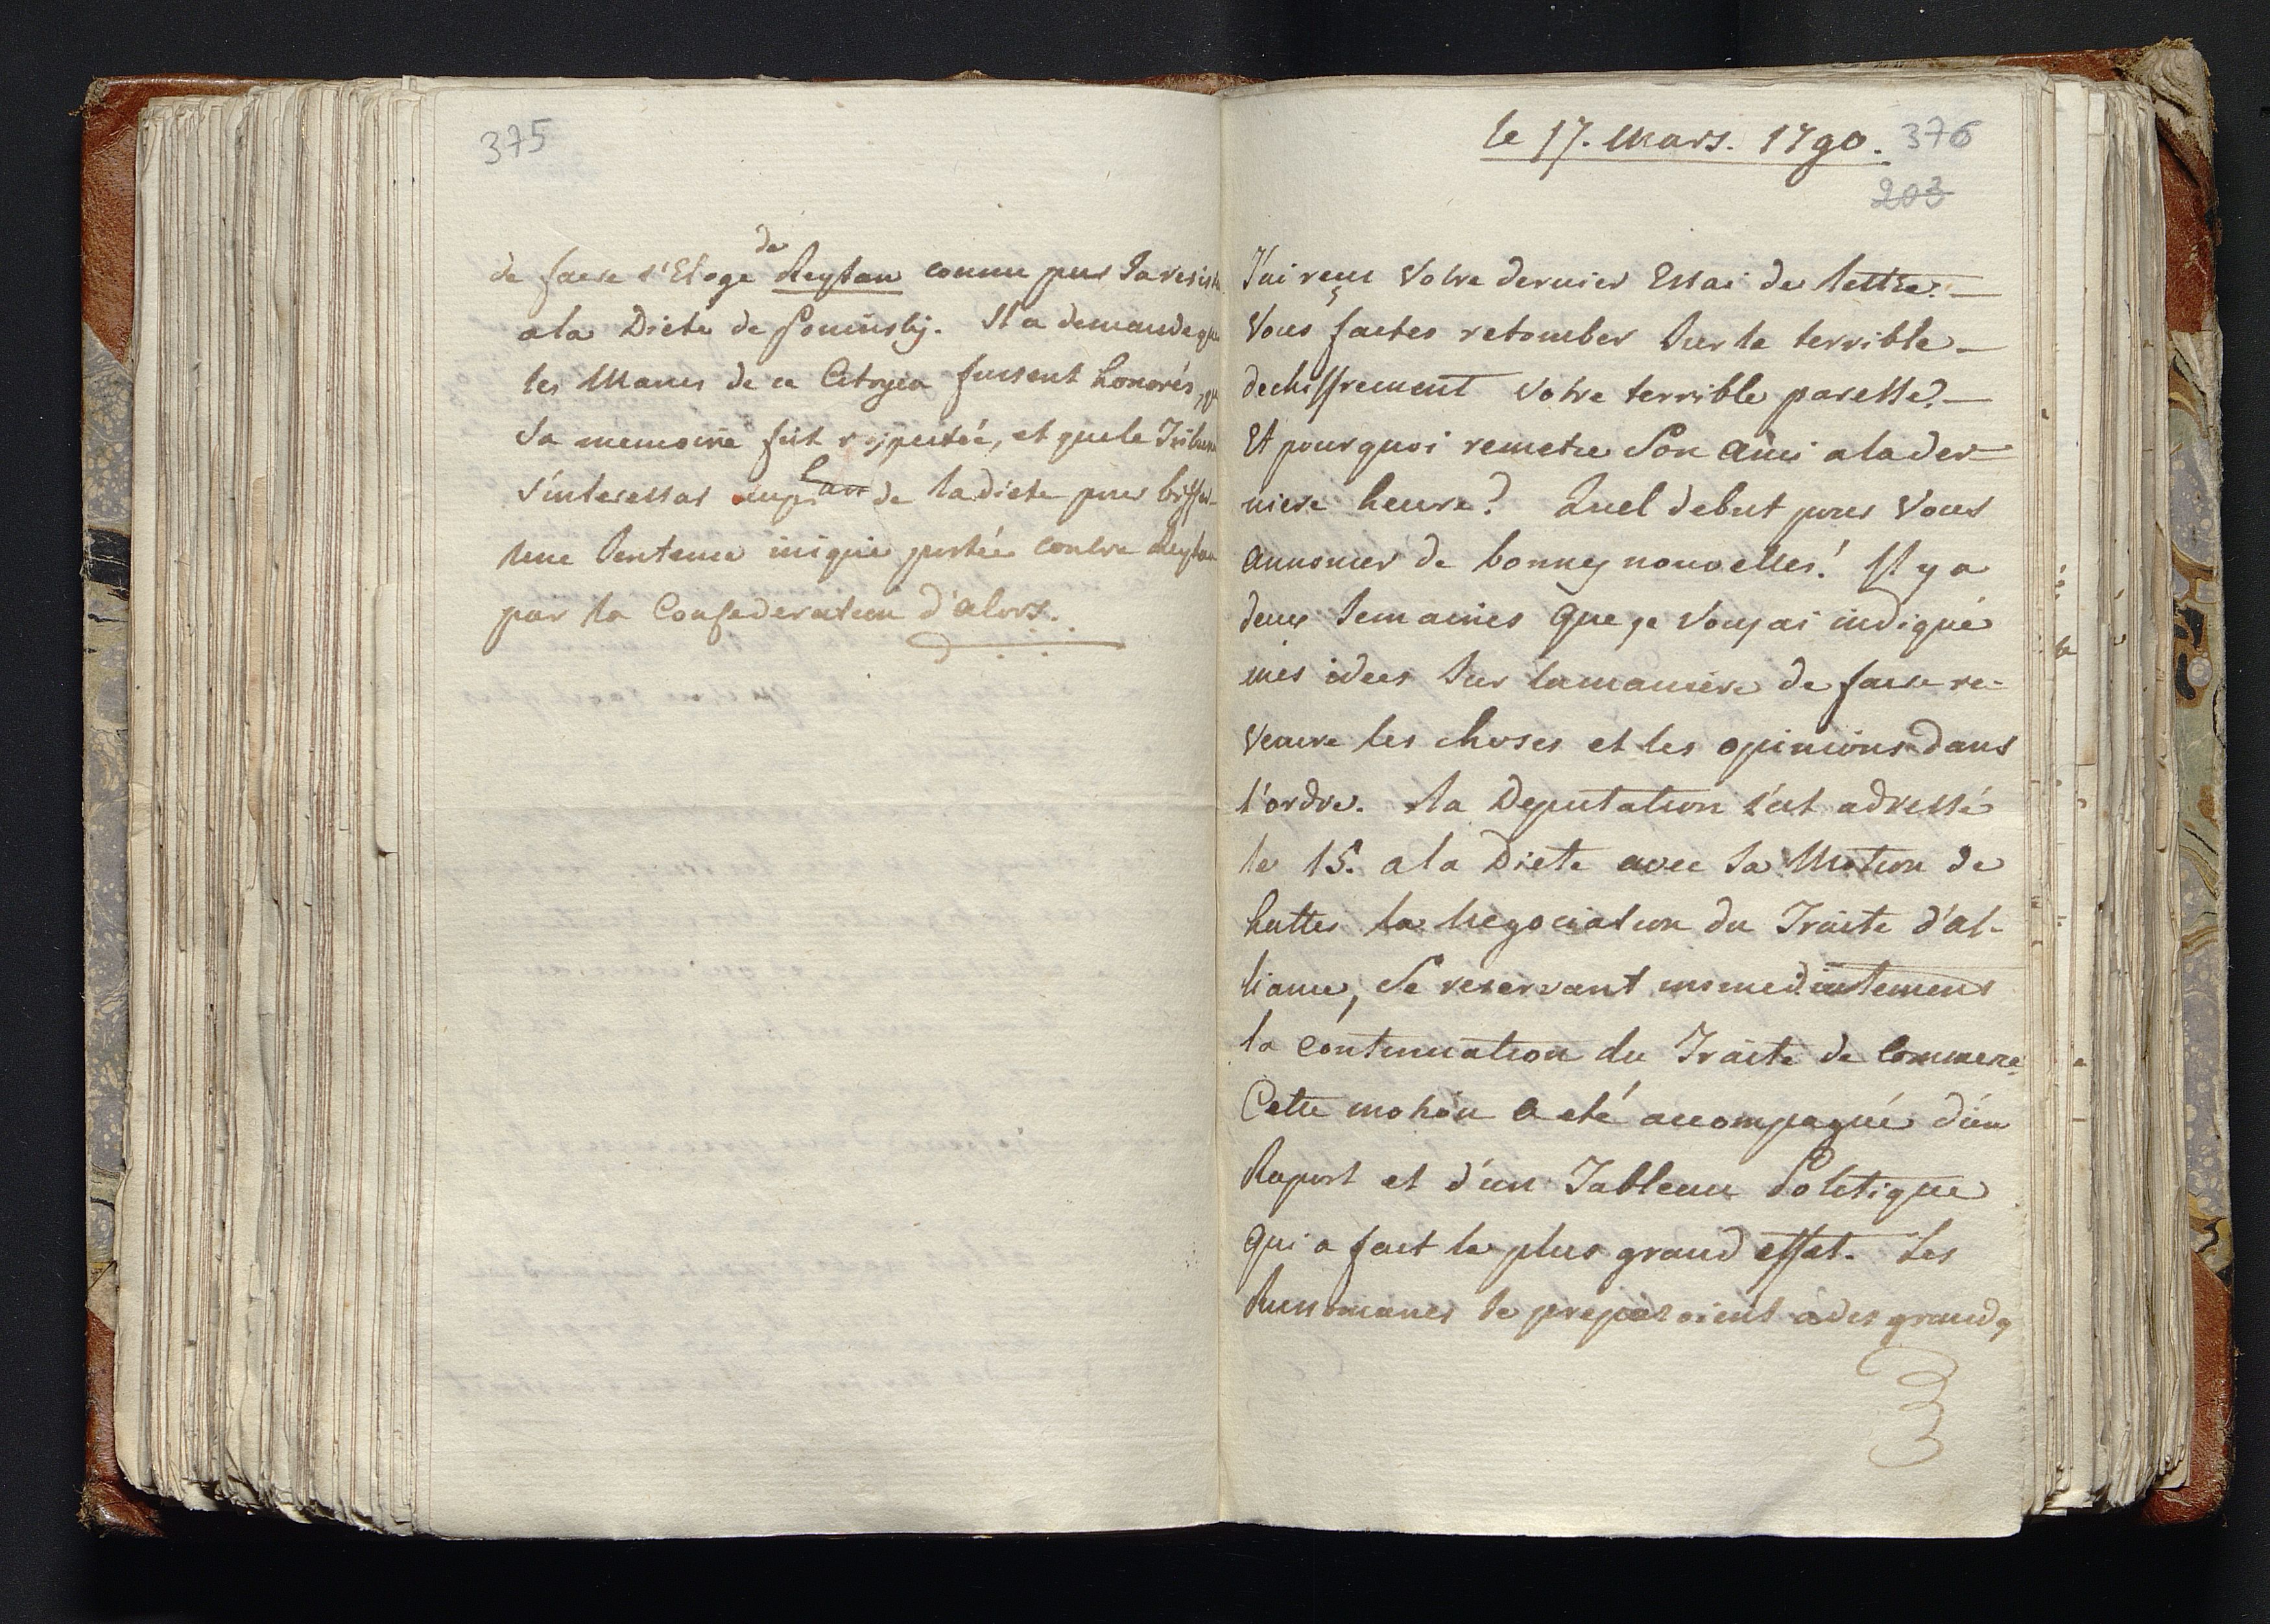 375
de faire l'Eloge de Reytan connu par sa resist
a la Diete de Poninsky. Il a demande que
les Manes de ce Citoyen fussent honorés, que
sa memoire fut respectée, et que le Tribun
s'interessat de la diete pour biffer
une Sentence inique portée contre Reytan
par la Confederation d'alors.
le 17. Mars. 1790. 376
203
J'ai reçu Votre dernier Essai de lettre.
Vous faites retomber sur le terrible
dechiffrement votre terrible paresse.
Et pourquoi remetre son Ami a la der-
niere heure? Quel debut pour Vous
annoncer de bonnes nouvelles! Il y a
deux Semaines que je Vous ai indiqué
mes idees sur la maniere de faire re-
venire les choses et les opinions dans
l'ordre. La Deputation s'est adressé
le 15. a la Diete avec sa Motion de
hatter la Negociation du Traite d'al-
liance, Se reservant immediatement
la continuation du Traite de Commerce
Cette motion a eté accompagné d'un
Raport et d'un Tableau Politique
qui a fait le plus grand effet. Les
Russomanes se preparoient à des grands